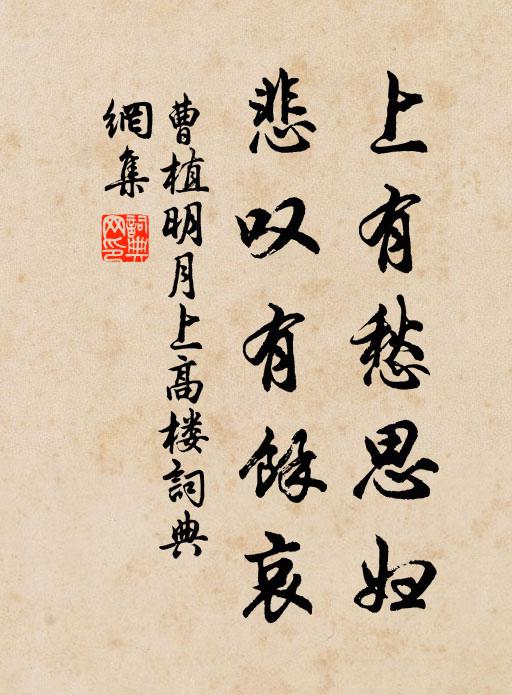 上有愁思妇
悲叹有餘哀
曹植明月上高楼詞典
網集
詞典
网印